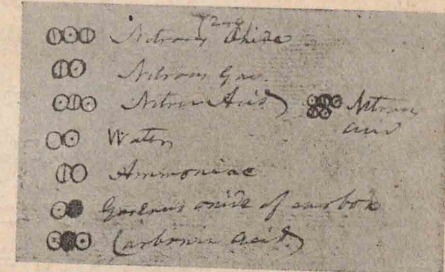 Nitrous Oxide
Nitrous Gas
Nitric Acid Nitrous
acid
Water
Ammoniac
Gaseous oxide of carbon
Carbonic acid